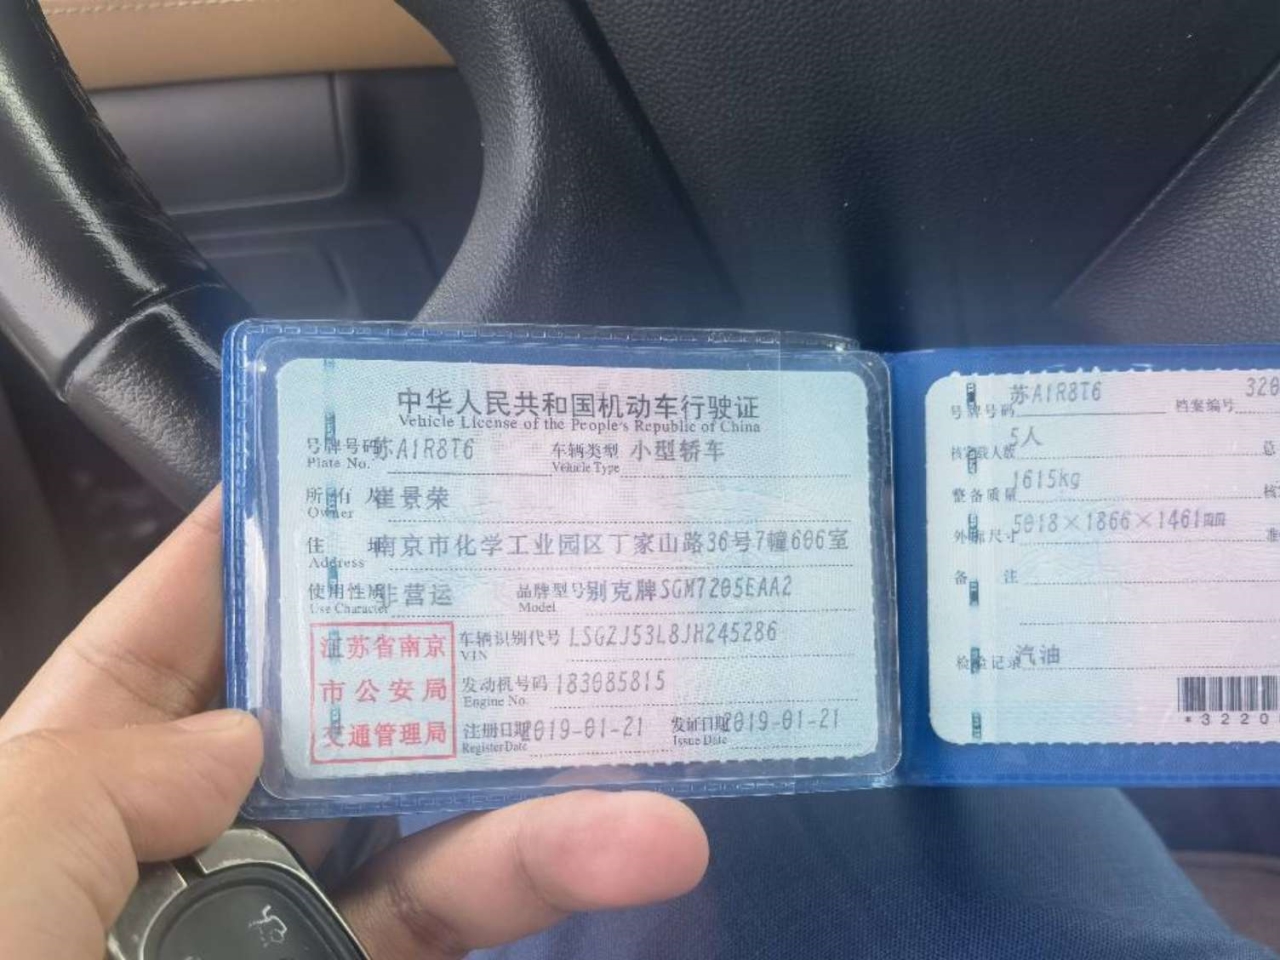 中华人民共和国机动车行驶证
Vehicle License of the People's Republic of China
号牌号码 苏A1R8T6 车辆类型 小型轿车
Plate No. Vehicle Type
所有人 崔景荣
Owner
住址 南京市化学工业园区丁家山路36号7幢606室
Address
使用性质 非营运 品牌型号 别克牌SGM7205EAA2
Use Character Model
江苏省南京
市公安局
交通管理局
车辆识别代号 LSGZJ53L8JH245286
VIN
发动机号码 183085815
Engine No.
注册日期 2019-01-21 发证日期 2019-01-21
Register Date Issue Date
号牌号码 苏A1R8T6 档案编号 320
核定载人数 5人 总
整备质量 1615kg 核
外廓尺寸 5018×1866×1461mm 准
备注
检验记录 汽油
*3220